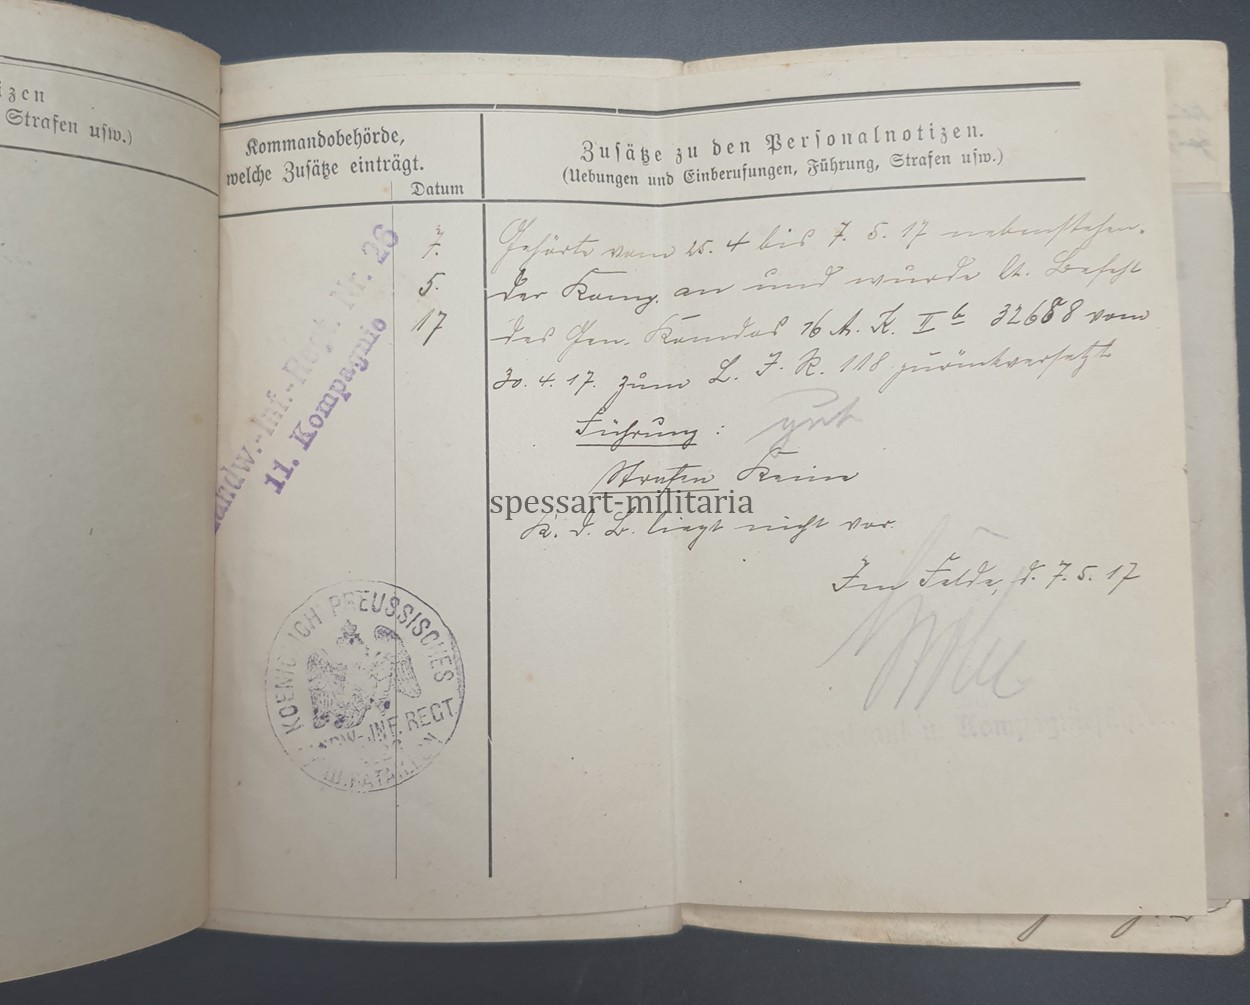 izen
Strafen usw.)
Kommandobehörde,
welche Zusätze einträgt.
Datum
Zusätze zu den Personalnotizen.
(Uebungen und Einberufungen, Führung, Strafen usw.)
Landw.-Inf.-Regt. Nr. 26
11. Kompagnie
7.
5.
17
Gehörte vom 25. 4 bis 7. 5. 17 nebenstehen-
der Komp. an und wurde lt. Befehl
des Gen. Komdos 16 A. K. II b 32688 vom
30. 4. 17. zum L. I. R. 118 zurückversetzt
Führung: gut
Strafen Keine
K. d. B. liegt nicht vor.
Im Felde, d. 7. 5. 17
spessart-militaria
KOENIGLICH PREUSSISCHES
LANDW.-INF. REGT.
III. BATAILLON